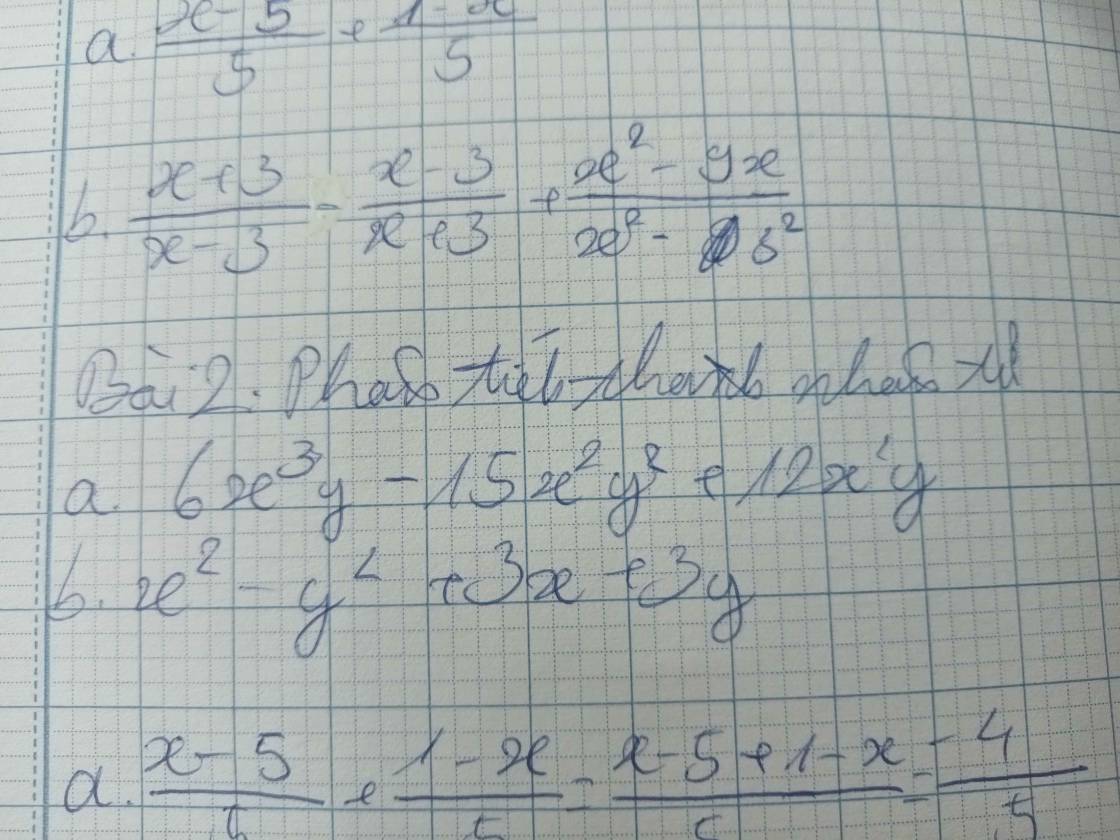 a. (x-5)/5 + (1-x)/5
b. (x+3)/(x-3) - (x-3)/(x+3) + (x² - 9x)/(x² - 3²)
Bài 2. Phân tích thành nhân tử
a. 6x³y - 15x²y² + 12x²y
b. x² - y² + 3x + 3y
a. (x-5)/5 + (1-x)/5 = (x-5+1-x)/5 = -4/5